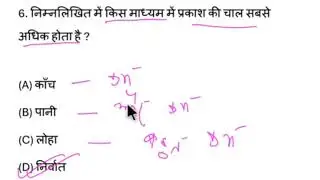 6. निम्नलिखित में किस माध्यम में प्रकाश की चाल सबसे
अधिक होता है ?
(A) काँच
(B) पानी
(C) लोहा
(D) निर्वात